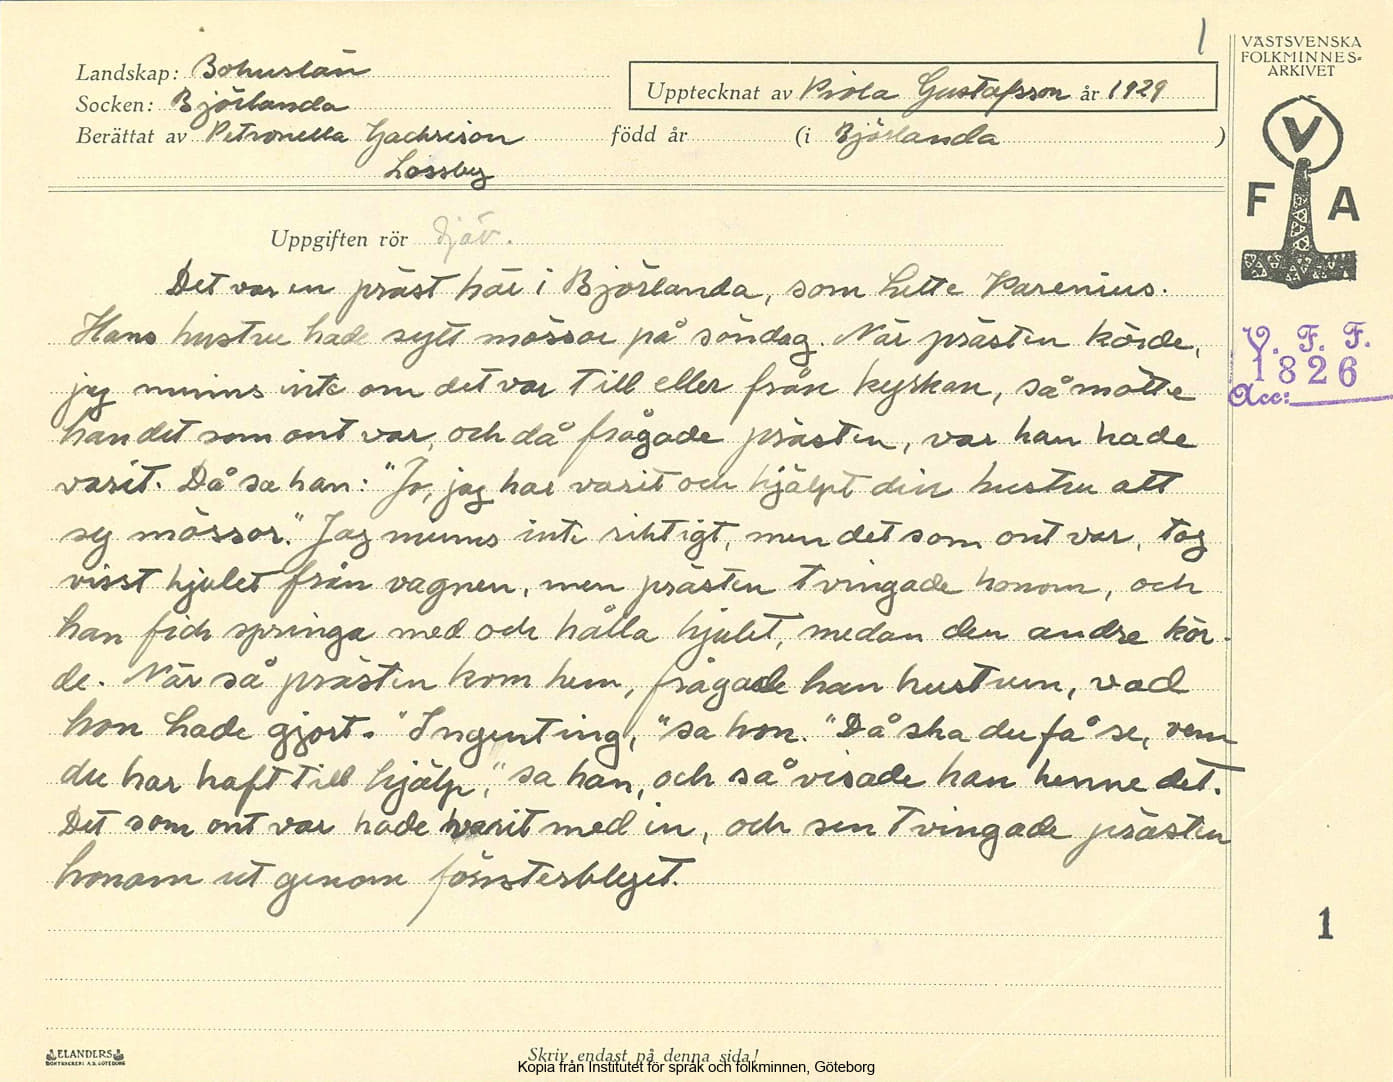 1
VÄSTSVENSKA
FOLKMINNES-
ARKIVET
Landskap: Bohuslän
Socken: Björlanda
Upptecknat av Viola Gustafsson år 1929
Berättat av Petronella Zachrison född år (i Björlanda )
Lossby
V
F A
Uppgiften rör djäv.
Det var en präst här i Björlanda, som hette Parenius.
Hans hustru hade sytt mössor på söndag. När prästen körde,
jag minns inte om det var till eller från kyrkan, så mötte
han det som ont var, och då frågade prästen, var han hade
varit. Då sa han: "Jo, jag har varit och hjälpt din hustru att
sy mössor." Jag minns inte riktigt, men det som ont var, tog
visst hjulet från vagnen, men prästen tvingade honom, och
han fick springa med och hålla hjulet, medan den andre kör-
de. När så prästen kom hem, frågade han hustrun, vad
hon hade gjort. "Ingenting," sa hon. "Då ska du få se, vem
du har haft till hjälp," sa han, och så visade han henne det.
Det som ont var hade varit med in, och sen tvingade prästen
honom ut genom fönsterblyet.
V. F. F.
1826
Acc:
1
ELANDERS
BOKTRYCKERI A.B. GÖTEBORG
Skriv endast på denna sida!
Kopia från Institutet för språk och folkminnen, Göteborg